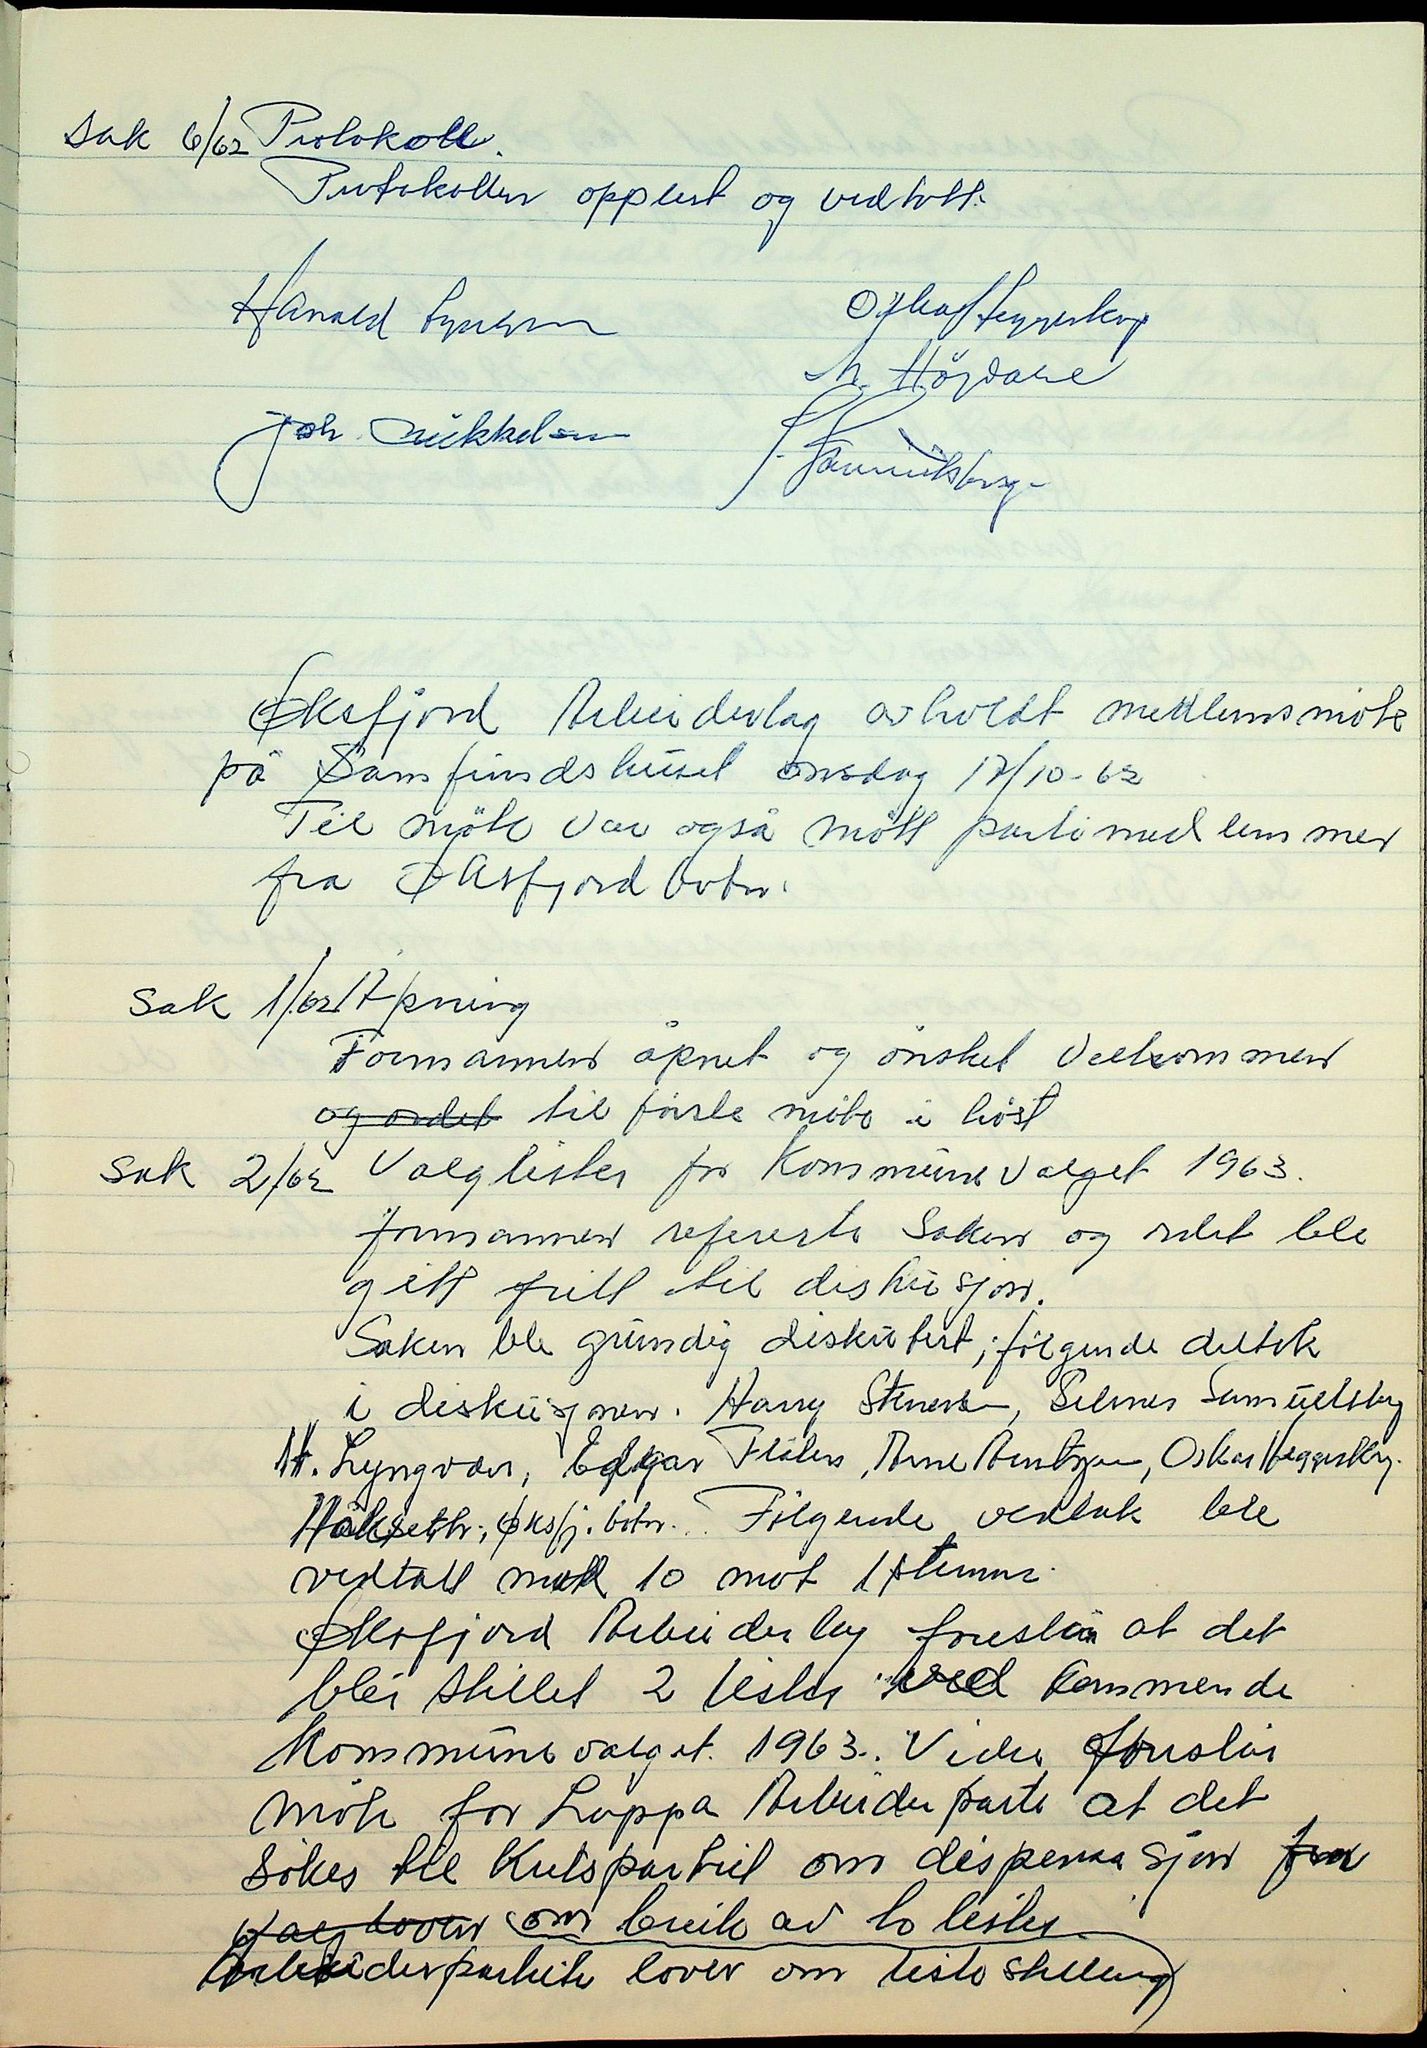 Sak 6/62 Protokoll.
Protokollen opplest og vedtatt.
Harald Lyngvær
Oskar Heggeskog
M. Høydahl
Joh. Mikkelsen
S. Samuelsberg
Øksfjord Arbeiderlag avholdt medlemsmöte
på Samfundshuset onsdag 17/10-62
Til möte var også mött partimedlemmer
fra Øksfjordbotn.
Sak 1/62 Åpning
Formannen åpnet og önsket velkommen
og ordet til förste möte i höst
Sak 2/62 Valglister for Kommunevalget 1963.
formannen refererte saken og ordet ble
gitt fritt til diskusjon.
Saken ble grundig diskutert, fölgende deltok
i diskusjonen. Harry Stenersen, Selmer Samuelsberg
H. Lyngvær, Edgar Flåten, Arne Arntzen, Oskar Heggeskog.
Höksethr., Øksfj.botn. Fölgende vedtak ble
vedtatt med 10 mot 1 stemme.
Øksfjord Arbeiderlag foreslår at det
blir stillet 2 lister ved kommende
Kommunevalget 1963. Vider foreslår
möte for Loppa Arbeiderparti at det
sökes til Kretspartiet om dispensasjon fra
valgloven om bruk av to lister
Arbeiderpartiets lover om listestilling